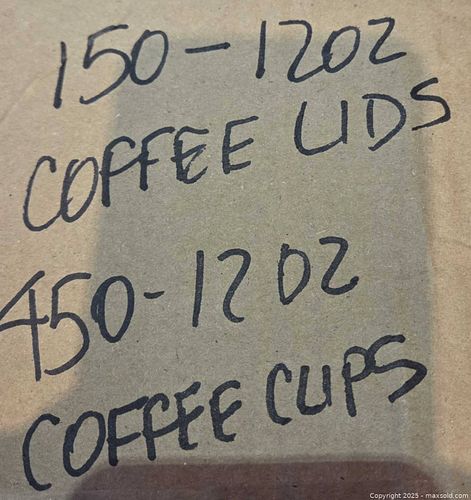 150-12OZ
COFFEE LIDS
450-12OZ
COFFEE CUPS
Copyright 2025 - maxsold.com